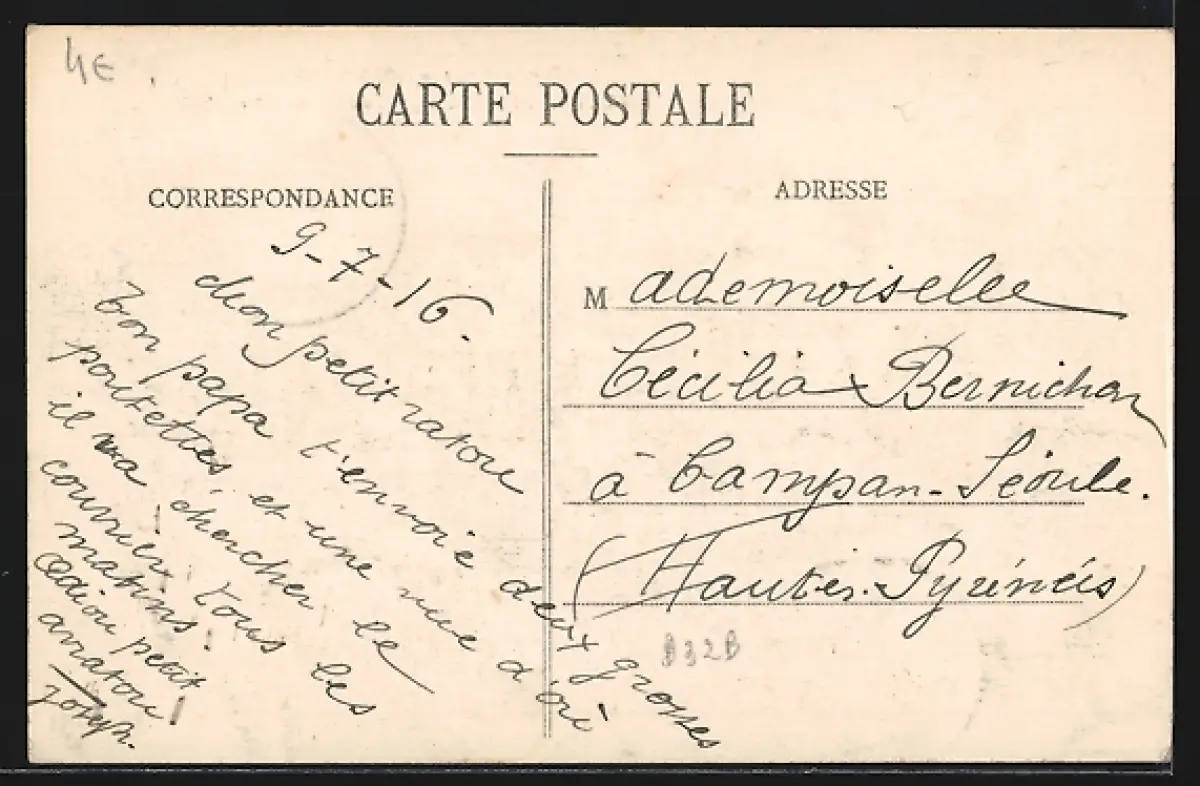 4€
CARTE POSTALE
CORRESPONDANCE
ADRESSE
9-7-16.
Mon petit ratou
ton papa t'envoie deux grosses
poutettes, et une vue d'où
il va chercher le
courrier tous les
matins!
Adiou petit
ratou!
Joseph.
Mademoiselle
Cécilia Bernichan
à Campan-Séoube.
(Hautes-Pyrénées)
B32B